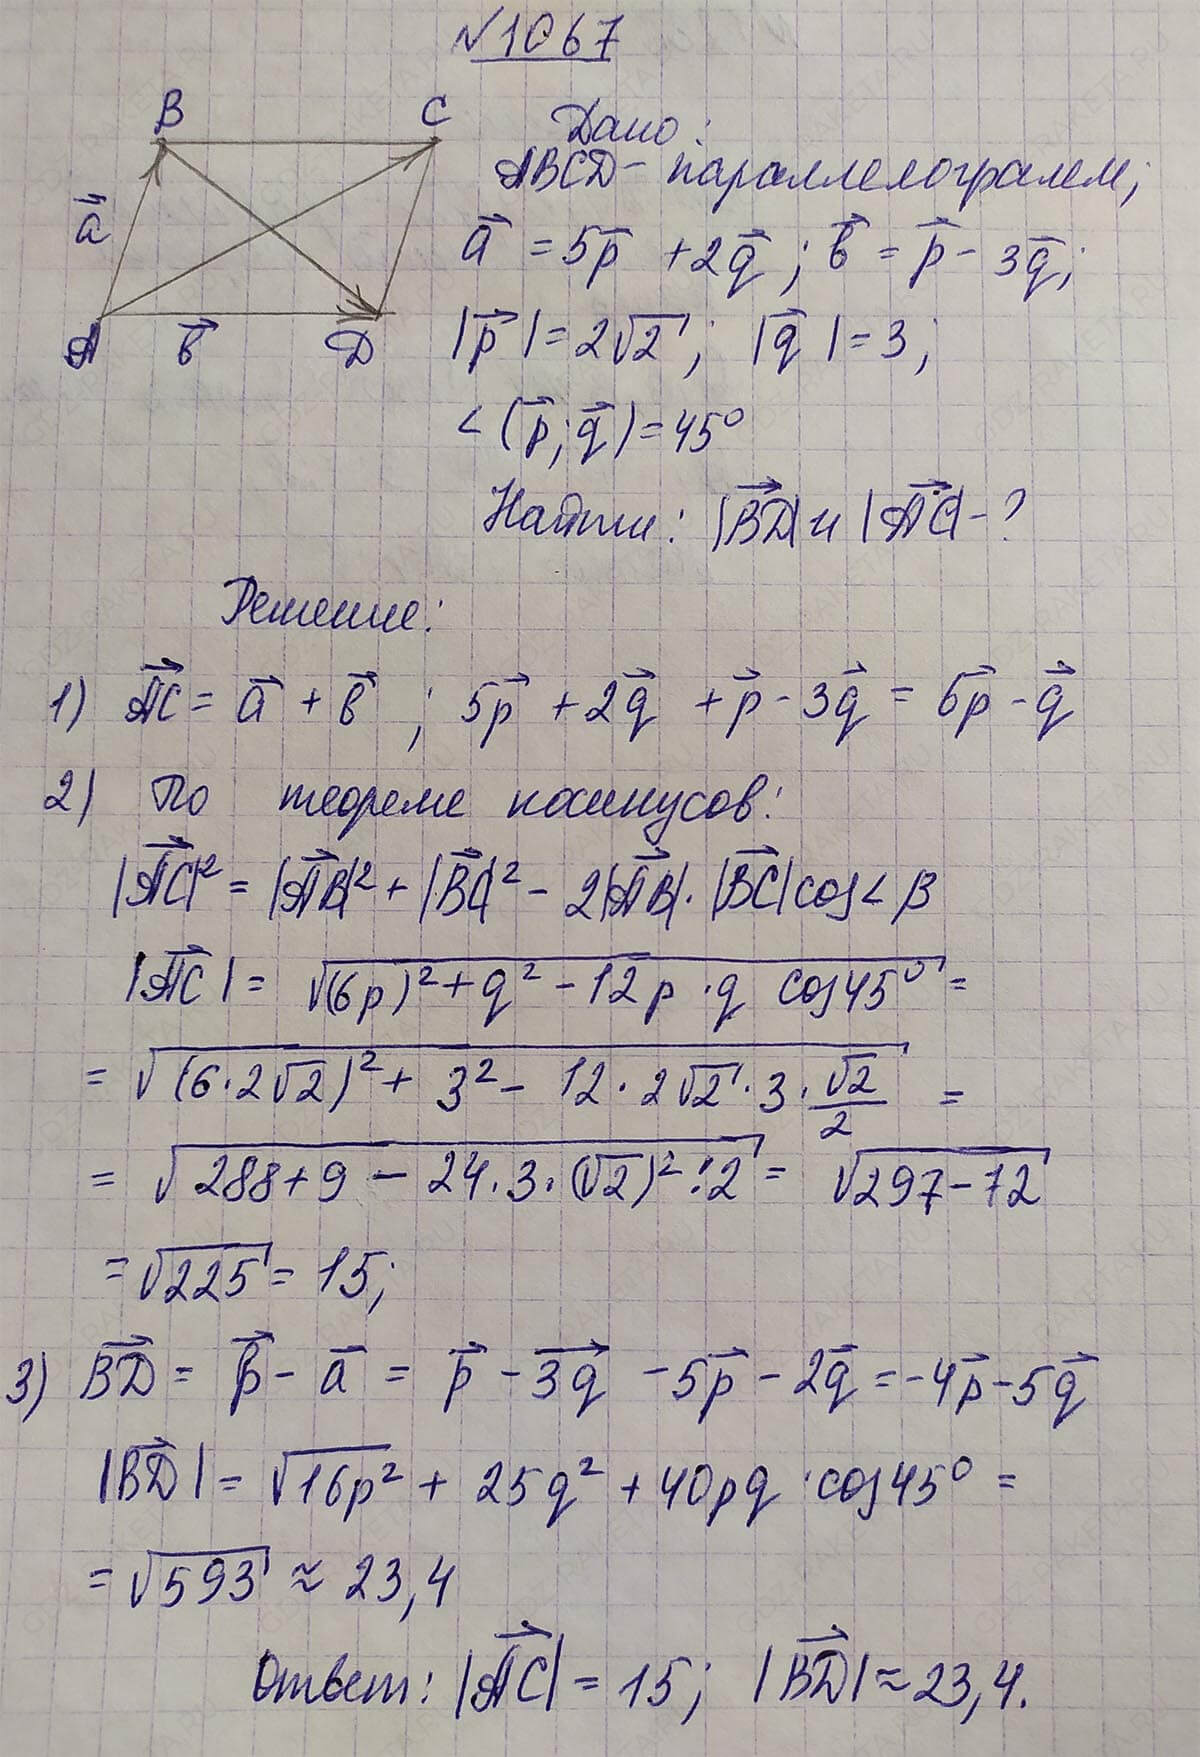 №1067
B C
a⃗
A b⃗ D
Дано:
ABCD - параллелограмм;
a⃗ = 5p⃗ + 2q⃗; b⃗ = p⃗ - 3q⃗;
|p⃗| = 2√2; |q⃗| = 3;
∠(p⃗; q⃗) = 45°
Найти: |BD⃗| и |AC⃗| - ?
Решение:
1) AC⃗ = a⃗ + b⃗; 5p⃗ + 2q⃗ + p⃗ - 3q⃗ = 6p⃗ - q⃗
2) По теореме косинусов:
|AC⃗|² = |AB⃗|² + |BC⃗|² - 2|AB⃗|·|BC⃗| cos∠B
|AC⃗| = √((6p)² + q² - 12p·q cos45°) =
= √((6·2√2)² + 3² - 12·2√2·3·√2/2) =
= √(288+9 - 24·3·(√2)²:2) = √(297-72)
= √225 = 15;
3) BD⃗ = b⃗ - a⃗ = p⃗ - 3q⃗ - 5p⃗ - 2q⃗ = -4p⃗ - 5q⃗
|BD⃗| = √16p² + 25q² + 40pq·cos45° =
= √593 ≈ 23,4
Ответ: |AC⃗| = 15; |BD⃗| ≈ 23,4.